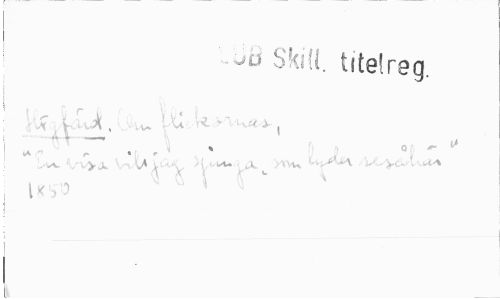 LUB Skill. titelreg.
Högfärd. Om flickornas,
"En visa vill jag sjunga, som lyder sesåhär"
1850